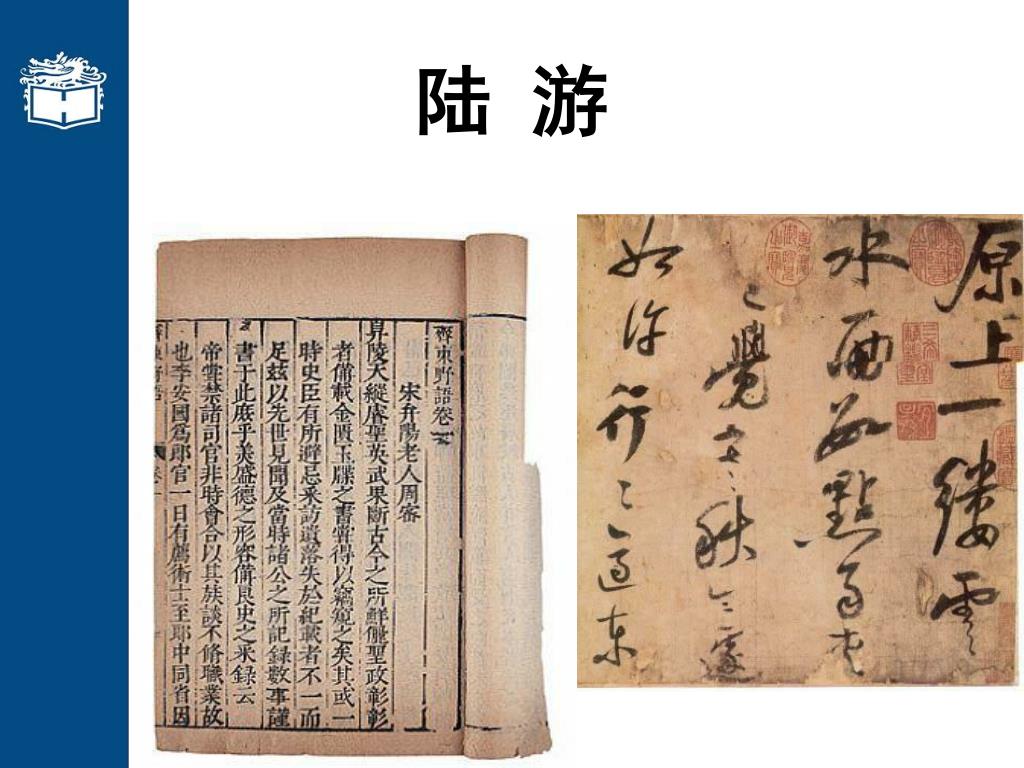 陆 游
齊東野語卷一
宋弁陽老人周密
昇陵天縱睿聖英武果斷古今之所鮮儷聖政彰彰
者備載金匱玉牒之書嘗得以竊窺之矣其或一
時史臣有所避忌采訪遺落失於紀載者不一而
足茲以先世見聞及當時諸公之所記錄數事謹
書于此庶乎美盛德之形容備良史之采錄云
帝嘗禁諸司官非時會合以其族談不脩職業故
也李安國爲郎官一日有薦術士至耶中同省因
原上一縷雲
水面數點雨
覺
秋
如許
東